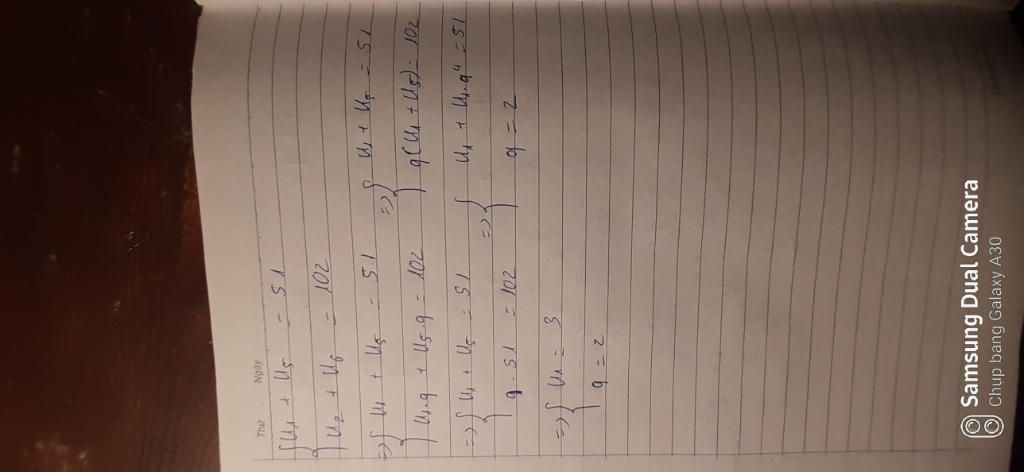 Thứ
Ngày
{ u₁ + u₅ = 51
{ u₂ + u₆ = 102
=> { u₁ + u₅ = 51 => { u₁ + u₅ = 51
{ u₁.q + u₅.q = 102 { q(u₁ + u₅) = 102
=> { u₁ + u₅ = 51 => { u₁ + u₁.q⁴ = 51
{ q . 51 = 102 { q = 2
=> { u₁ = 3
{ q = 2
Samsung Dual Camera
Chụp bằng Galaxy A30